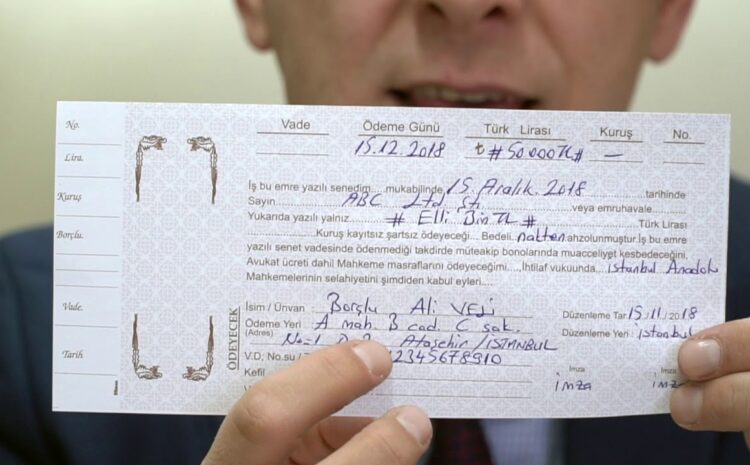 No.
Lira.
Kuruş
Borçlu.
Vade.
Tarih
Vade Ödeme Günü Türk Lirası Kuruş No.
15.12.2018 ₺ #50.000TL# —
İş bu emre yazılı senedim.... mukabilinde, 15 Aralık 2018 tarihinde
Sayın ABC Ltd. Şti. veya emruhavale
Yukarıda yazılı yalnız # Elli Bin TL # Türk Lirası
Kuruş kayıtsız şartsız ödeyeceği... Bedeli nakten ahzolunmuştur. İş bu emre
yazılı senet vadesinde ödenmediği takdirde müteakip bonolarında muacceliyet kesbedeceğini.
Avukat ücreti dahil Mahkeme masraflarını ödeyeceğimi... İhtilaf vukuunda, istanbul Anadolu
Mahkemelerinin selahiyetini şimdiden kabul eyleri...
ÖDEYECEK
İsim / Ünvan : Borçlu Ali VELİ Düzenleme Tar. 15.11.2018
Ödeme Yeri : A mah. B cad. C sok. Düzenleme Yeri : istanbul
(Adres) No=1 Ataşehir / İSTANBUL
V.D, No.su / 12345678910
Kefil İmza İmza
imza imza